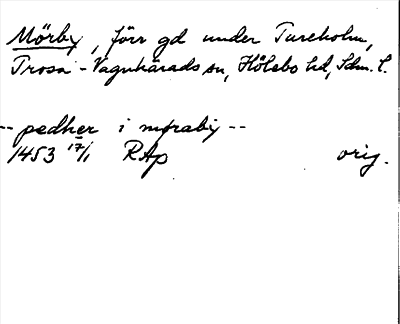 Mörby, förr gd under Tureholm,
Trosa-Vagnhärads sn, Hölebo hd, Sdm. l.
-- pedher i møraby --
1453 17/1 RAp orig.